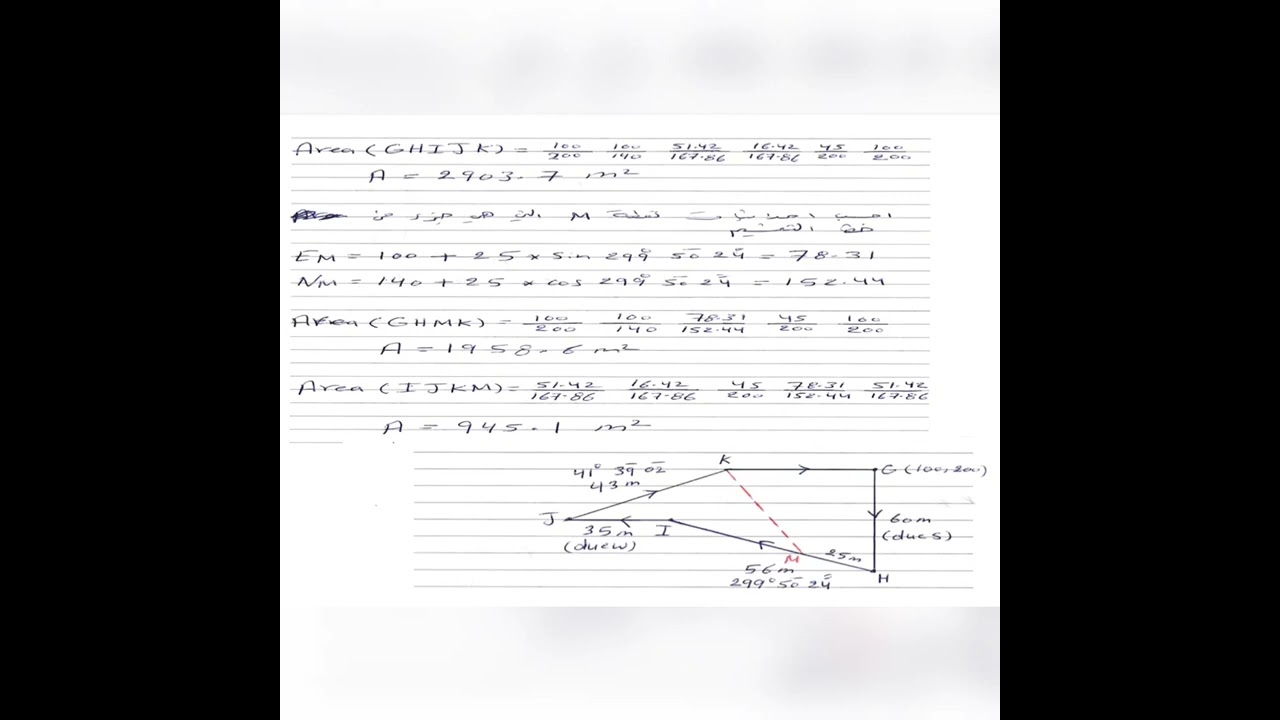 Area (GHIJK) = 100/200 100/140 51.42/167.86 16.42/167.86 45/200 100/200
A = 2903.7 m²
احسب احداثيات نقطة M التي هي جزء من
خط التقسيم
EM = 100 + 25 × sin 299° 50̄ 24̿ = 78.31
NM = 140 + 25 × cos 299° 50̄ 24̿ = 152.44
Area (GHMK) = 100/200 100/140 78.31/152.44 45/200 100/200
A = 1958.6 m²
Area (IJKM) = 51.42/167.86 16.42/167.86 45/200 78.31/152.44 51.42/167.86
A = 945.1 m²
K
41° 39̄ 02̿
43 m
G (100,200)
J
35 m
(due w)
I
60 m
(due s)
M
25 m
H
56 m
299° 50̄ 24̿